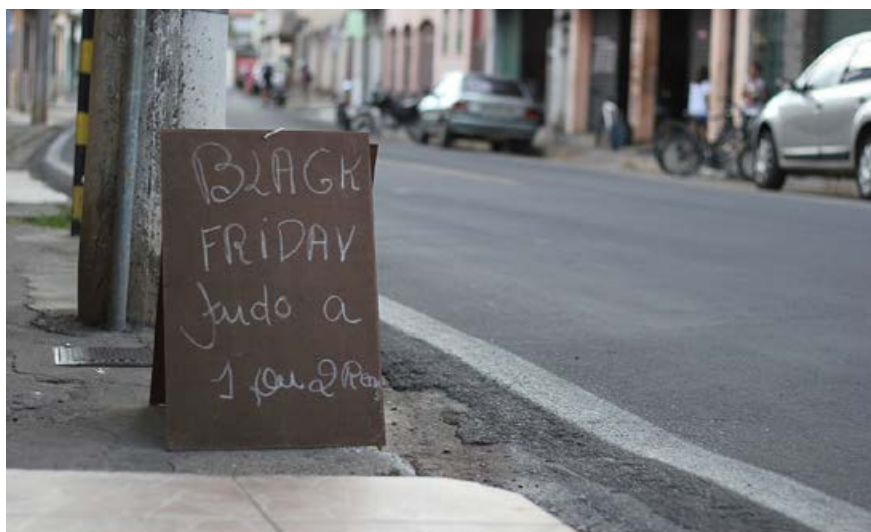 BLACK
FRIDAY
tudo a
1 ou 2 Reais